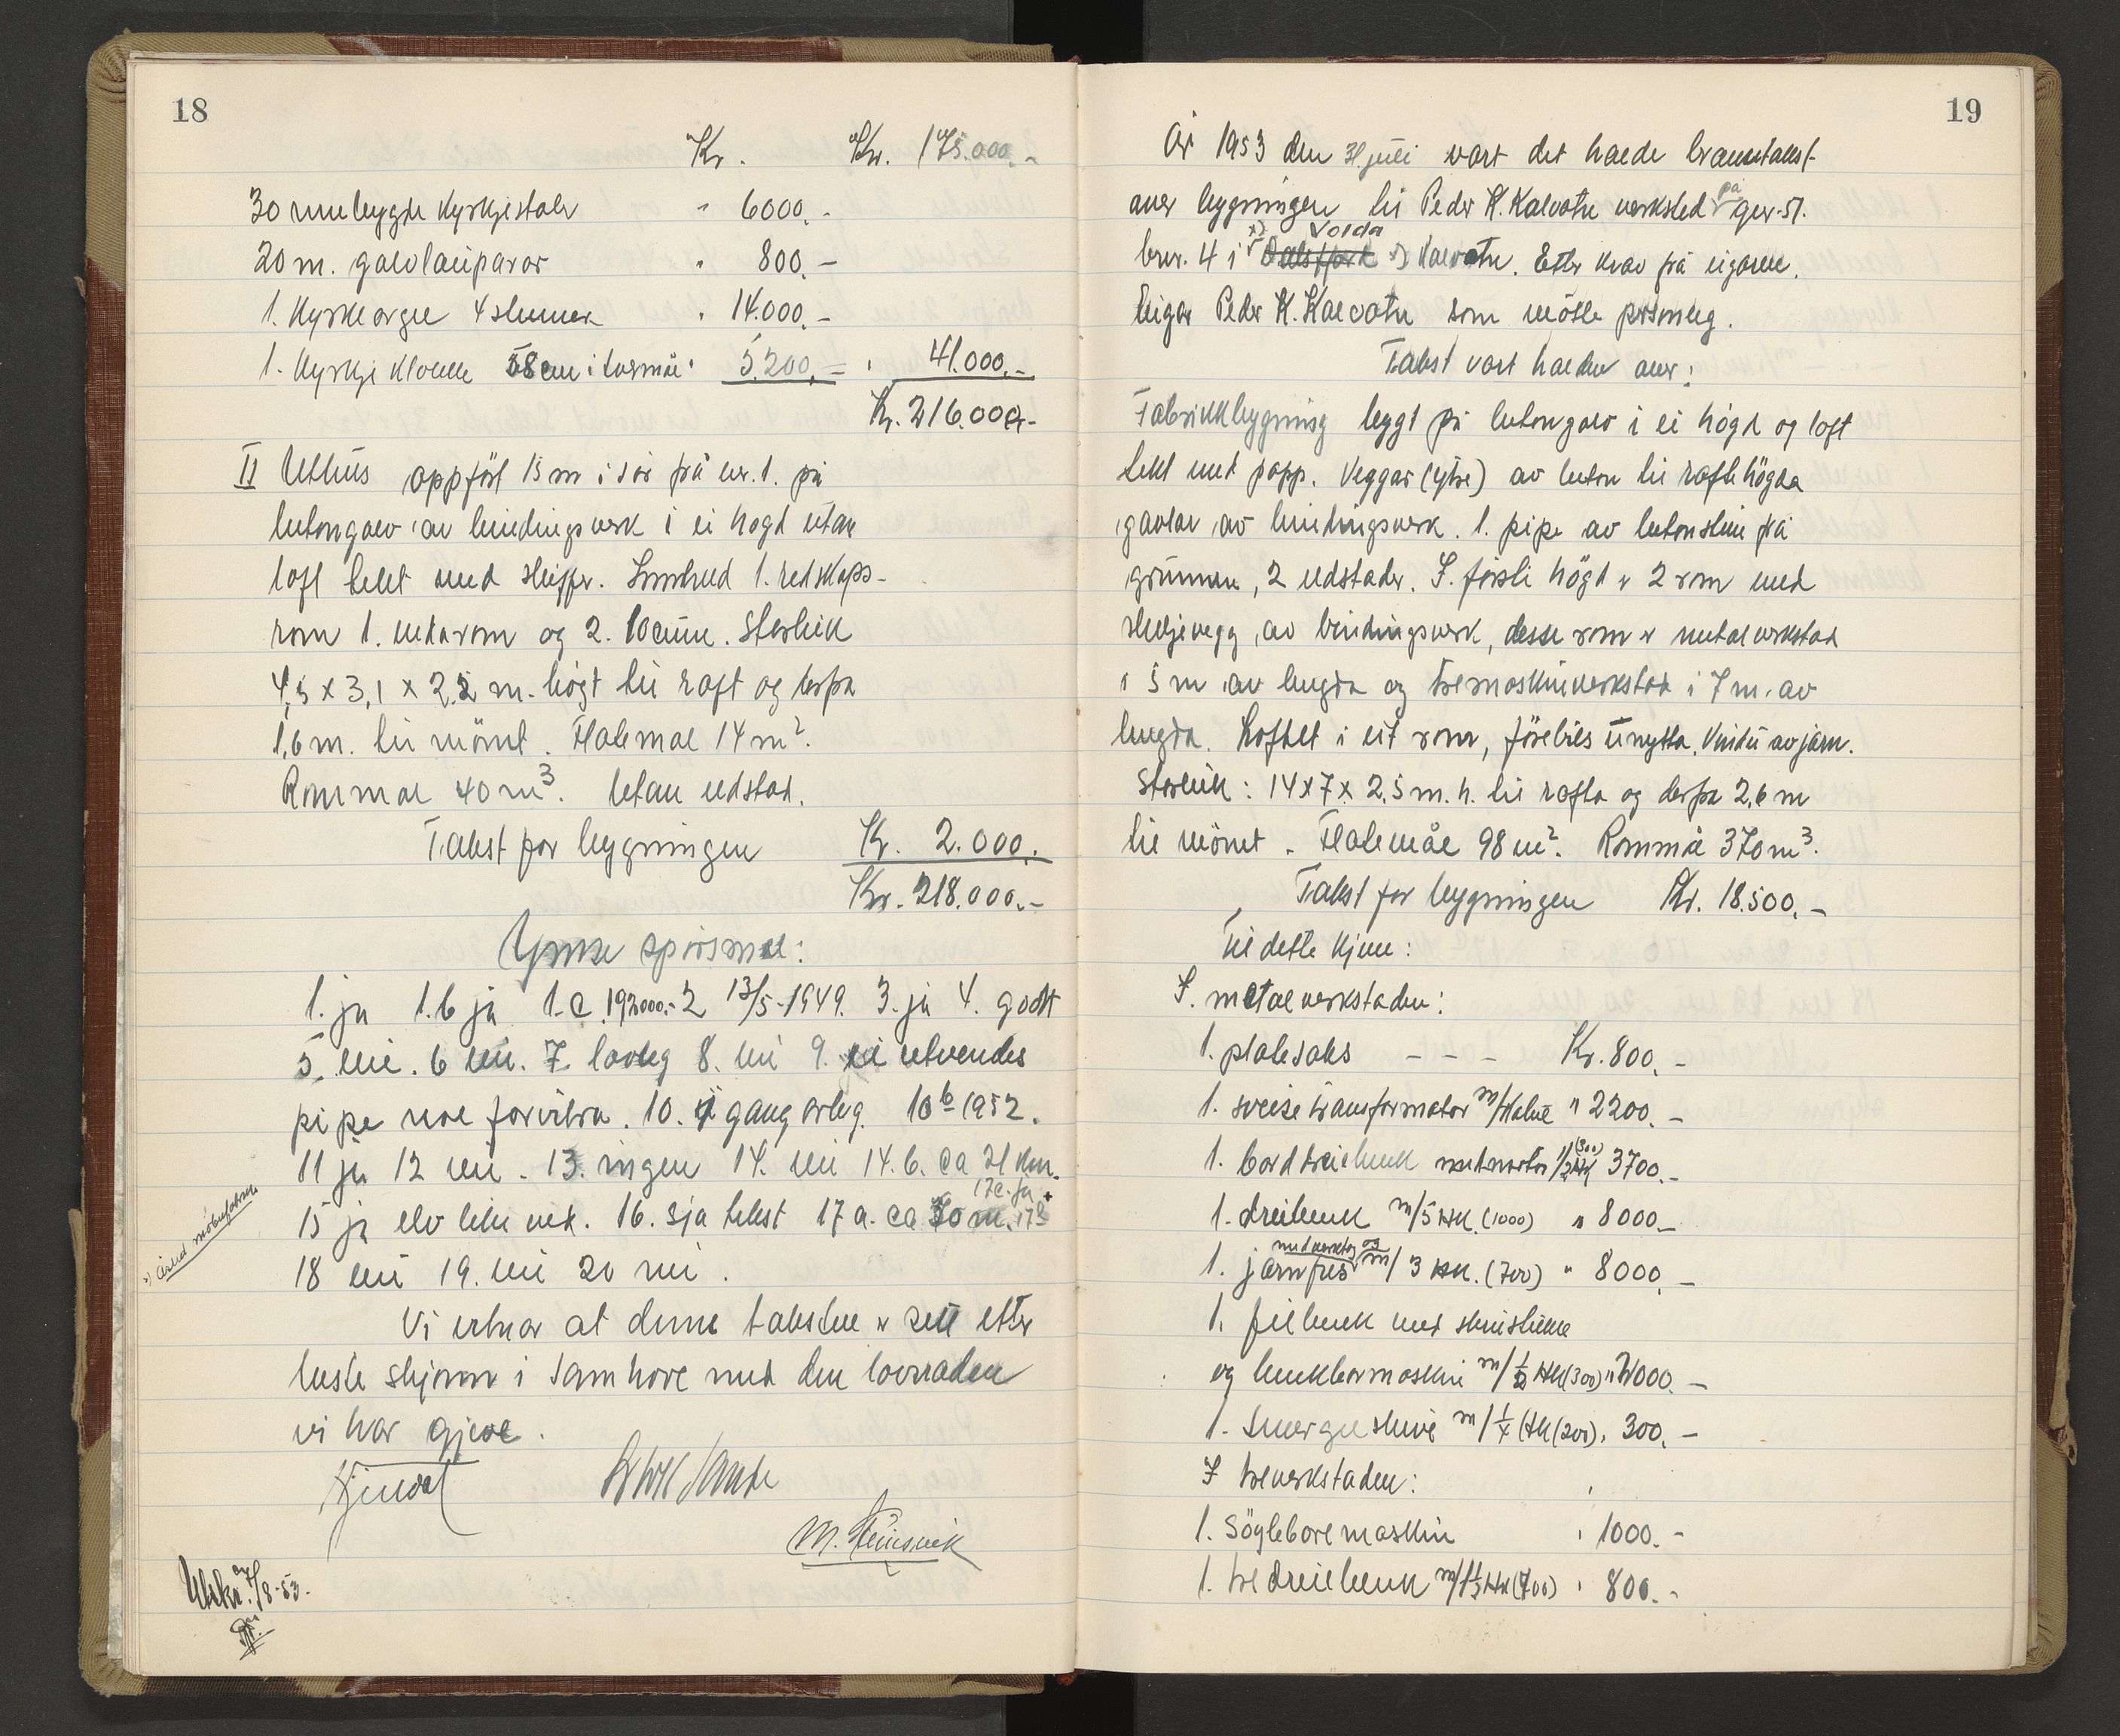 18
Kr. Kr. 175.000.-
30 umbygde kyrkjestolar " 6000.-
20 m. golvlauparar " 800.-
1. kyrkeorgel 4 stemmer " 14.000.-
1. kyrkje klokke 58 cm i tvermål " 5.200.- " 41.000.-
Kr. 216.000.-
II Uthus oppført 15 m i sør frå nr. 1. på
betongolv av bindingsverk i ei høgd utan
loft tekt med skifer. Innhald 1. redskaps-
rom 1. vedarom og 2. locum. Storleik
4,5 x 3,1 x 2,2 m. høgt til raft og derfra
1,6 m. til mönet. Flatemål 14 m².
Rommål 40 m³. Utan eldstad.
Takst for bygningen Kr. 2.000.
Kr. 218.000.-
Ymse spörsmål:
1. ja 1.b ja 1.c. 192000.- 2 13/5-1949. 3. ja 4. godt
5. nei. 6 nei. 7. lovleg 8. nei 9. ei utvendes
pipe noe forvitra. 10. ei gang årleg. 10b 1952.
11 ja 12 nei. 13. ingen 14. nei 14.b. ca 21 km.
17c. ja +
15 ja elv like ved. 16. sjå tekst 17 a. ca 30 m. 17b
18 nei 19. nei 20 nei.
Vi vitnar at denne taksten er sett etter
beste skjønn i samhøve med den lovnaden
vi har gjeve.
M. Steinsvik
Utskr. 7/8-53.
19
År 1953 den 31 juli vart det halde branntakst
over bygningen til Peder K. Kalvatn verksted på gnr. 51.
x) Volda
bnr. 4 i Dalsfjord x) Kalvatn. Etter krav frå eigaren.
Eigar Peder K. Kalvatn som møtte personleg.
Takst vart halden over:
Fabrikkbygning bygt på betongolv i ei högd og loft
tekt med papp. Veggar (ytre) av beton til raftehögda
gavlar av bindingsverk. 1. pipe av betonstein frå
grunnen, 2 eldstader. I. försti högd er 2 rom med
skiljevegg av bindingsverk, desse rom er metalverkstad
i 5 m av lengda og tremaskinverkstad i 7 m. av
lengda. Loftet i eit rom, förebils unytta. Vindu av jarn.
Storleik: 14 x 7 x 2,5 m. h. til rafta og derfra 2,6 m
til mönet. Flatemål 98 m². Rommål 370 m³.
Takst for bygningen Kr. 18.500.-
Til dette kjem:
I. metalverkstaden:
1. platesaks - - - Kr. 800.-
1. sveisetransformator m/ " 2200.-
1. bord dreiebenk med motor 1/2 HK (300) 3700.-
1. dreibenk m/5 HK. (1000) " 8000.-
med verktøy og
1. jarnfres m/ 3 HK. (700) " 8000.-
1. filbenk med skruistikke
og benkbormaskin m/ HK (300) " 2000.-
1. smergelskive m/ HK (200) " 300.-
I treverkstaden:
1. Söyleboremaskin " 1000.-
1. tredreiebenk m/ HK (700) " 800.-